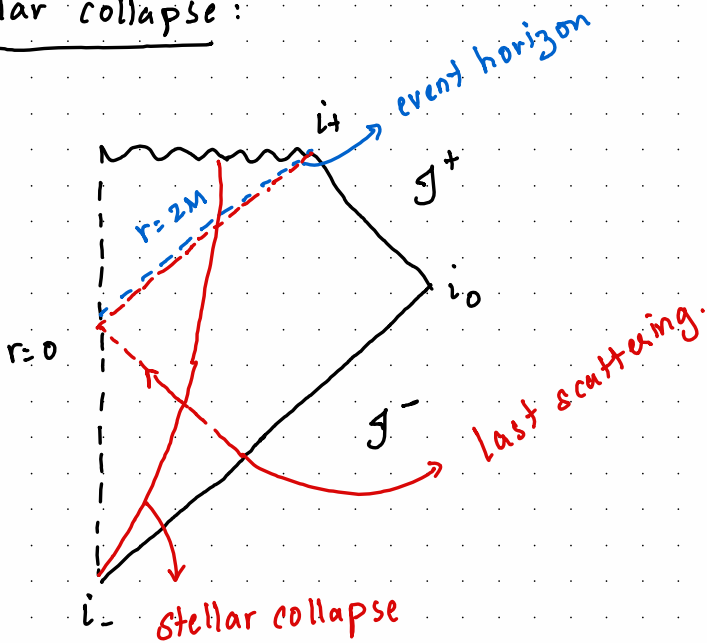 lar collapse :
event horizon
i+
𝒥+
r=2M
i0
r=0
last scattering.
𝒥-
i-
stellar collapse